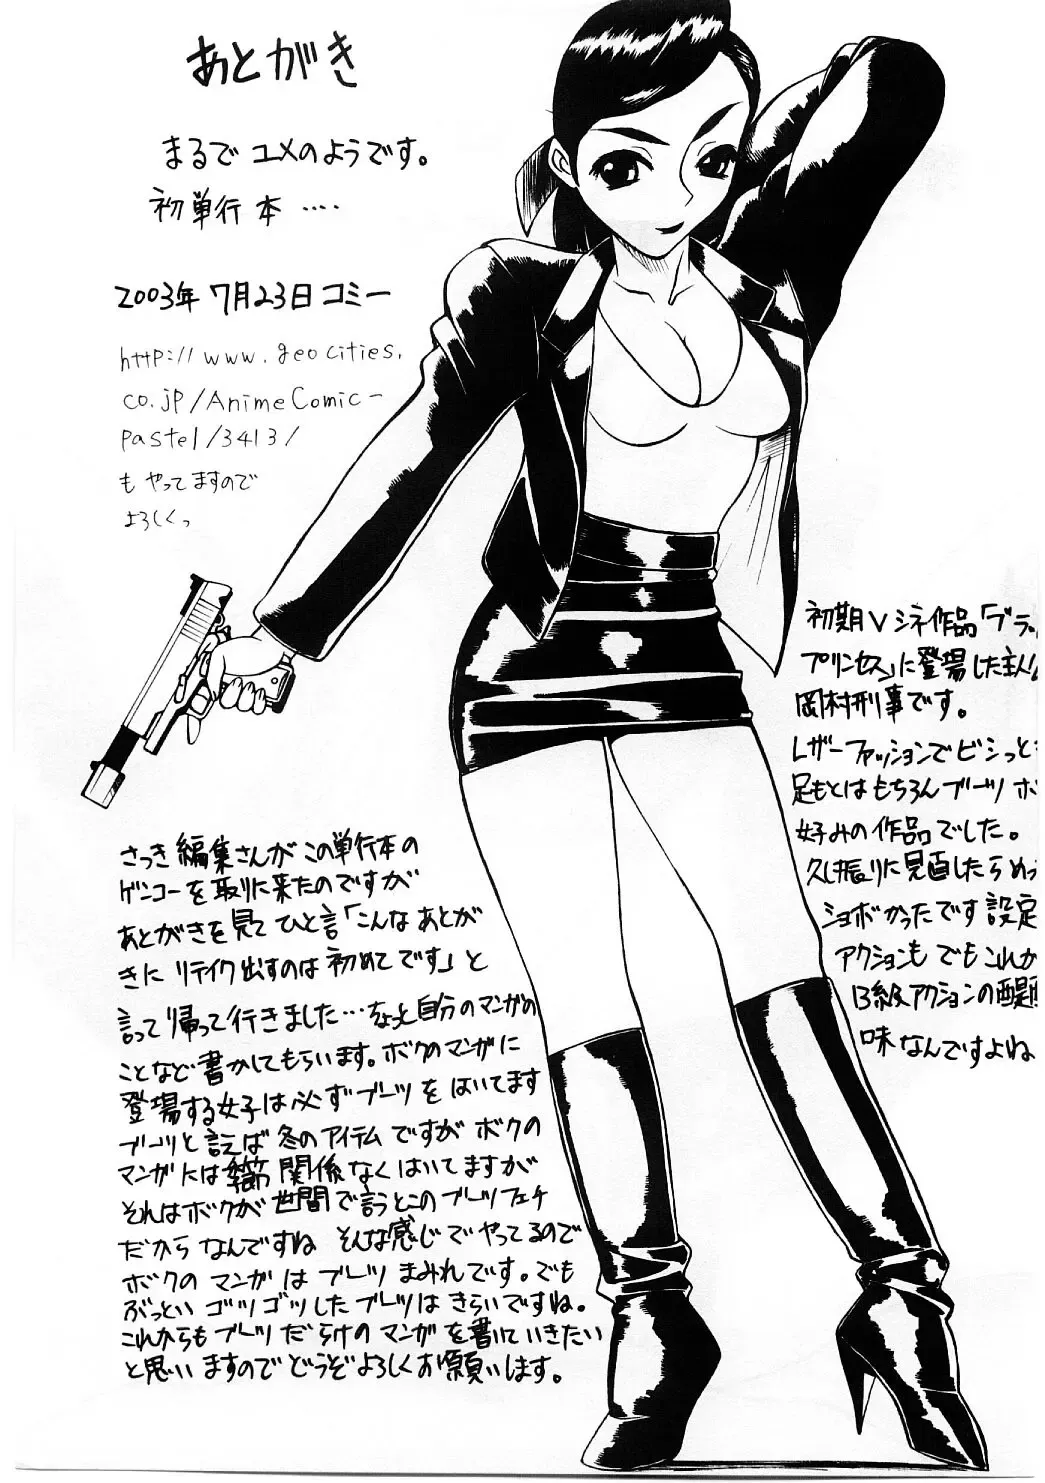 あとがき
まるでユメのようです。
初単行本 ‥‥
2003年7月23日コミー
http://www.geocities.
co.jp/AnimeComic-
pastel/3413/
もやってますので
よろしくっ
さっき編集さんがこの単行本の
ゲンコーを取りに来たのですが
あとがきを見てひと言「こんなあとが
きにリテイク出すのは初めてです」と
言って帰って行きました…なっと自分のマンガの
ことなど書かしてもらいます。ボクのマンガに
登場する女子は必ずブーツをはいてます
ブーツと言えば冬のアイテムですがボクの
マンガには季節関係なくはいてますが
それはボクが世間で言うとこのブーツフェチ
だからなんですね そんな感じでやってるので
ボクのマンガはブーツまみれです。でも
ぶっといゴツゴツしたブーツはきらいですね。
これからもブーツだらけのマンガを書いていきたい
と思いますのでどうぞよろしくお願いします。
初期Vシネ作品「ブラッ
プリンセス」に登場した主人
岡村刑事です。
レザーファッションでビシっと
足もとはもちろんブーツ ボ
好みの作品でした。
久し振りに見直したらめっ
ショボかったです 設定
アクションも でもこれが
B級アクションの醍
味なんですよね